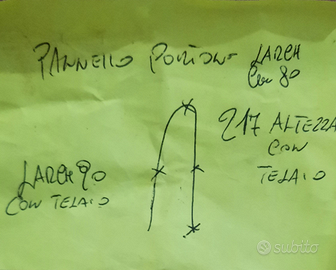 PANNELLO PORTONE LARGH
CM 80
217 ALTEZZA
CON
TELAIO
LARGH 90
CON TELAIO
subito